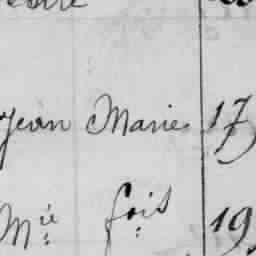 Jean Marie 17
Mie fois 19